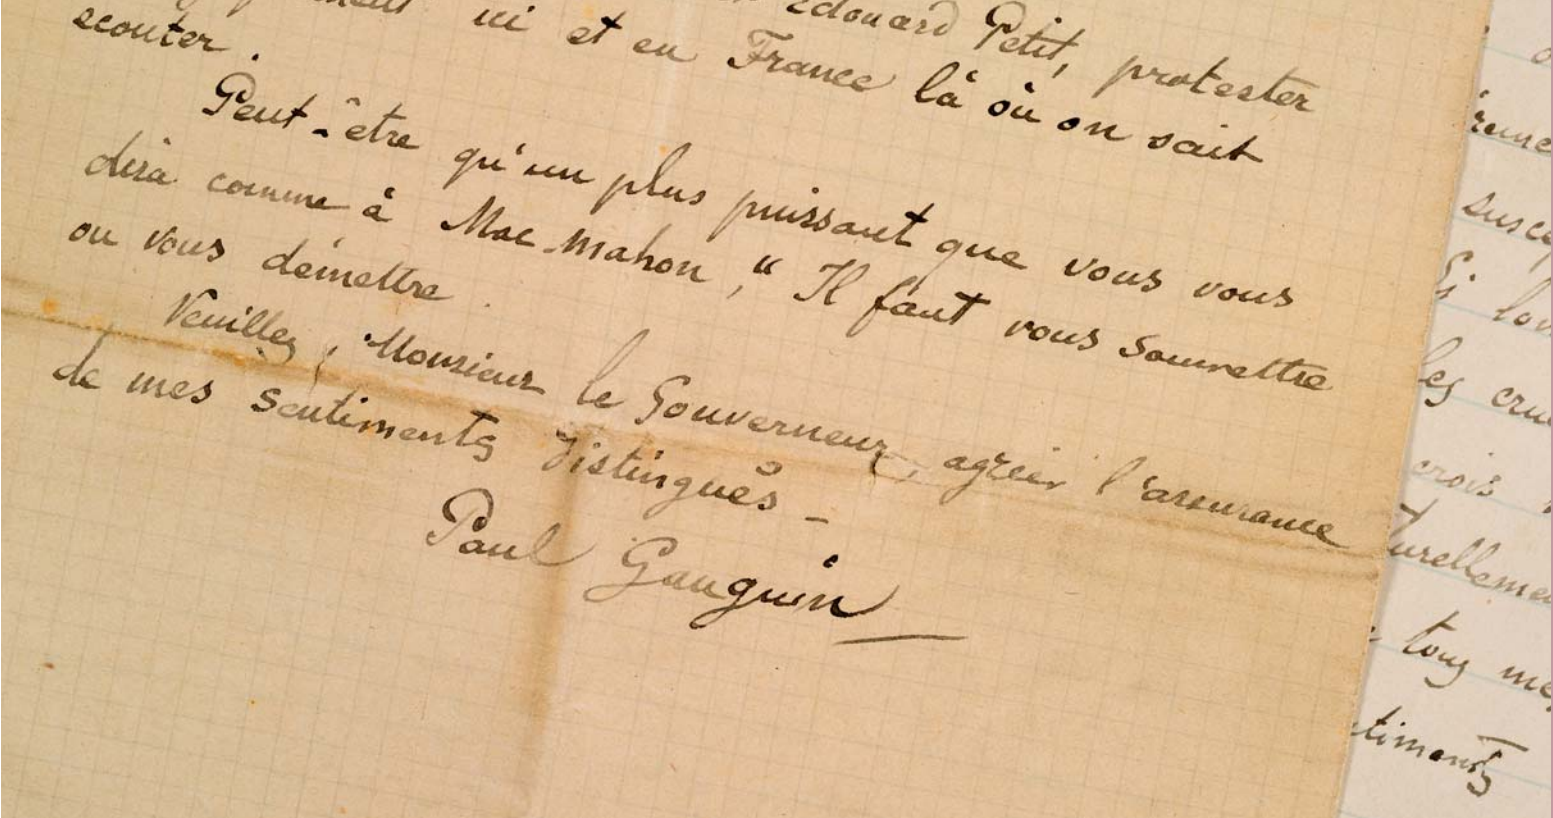 Edouard Petit, protester
ici et en France là où on sait
écouter.
Peut-être qu'un plus puissant que vous vous
dira comme à Mac-Mahon, " Il faut vous soumettre
ou vous démettre
Veuillez, Monsieur le Gouverneur, agréer l'assurance
de mes sentiments distingués -
Paul Gauguin
suscep
Si l'on
les
crois
turellement
tous mes
timents